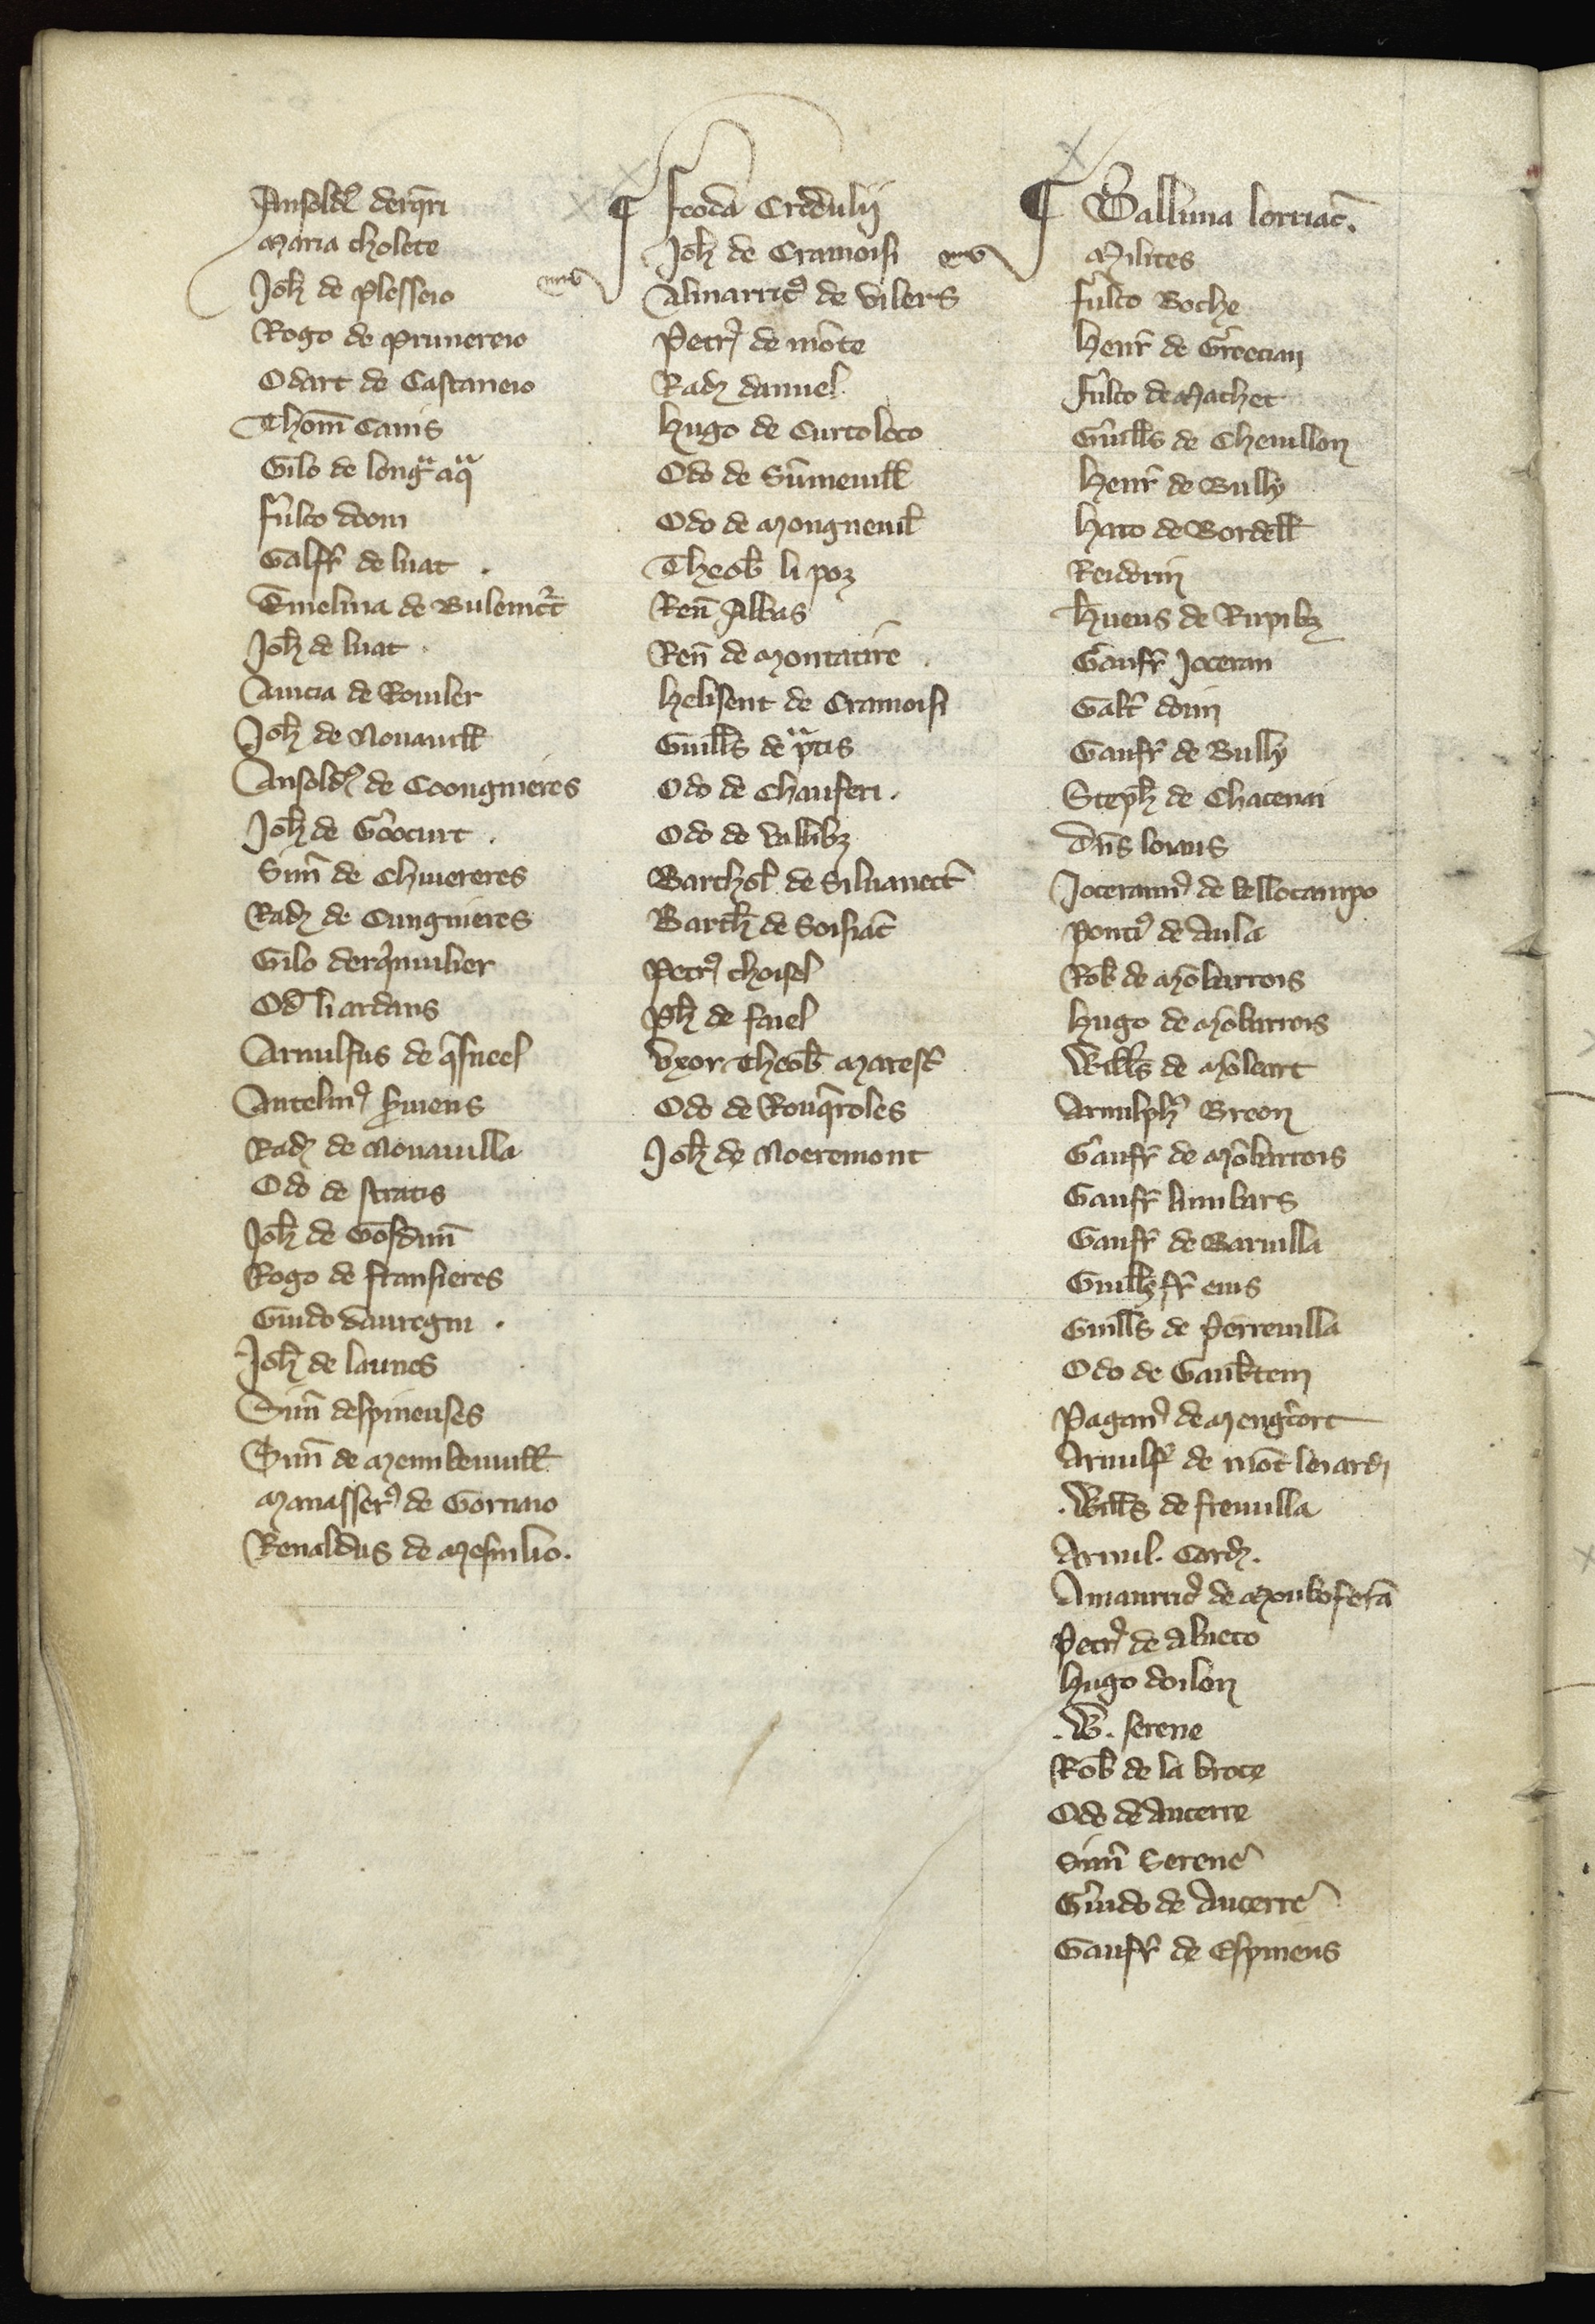 Ansold9 derqri
Maria cholete
Joh de plesseio
Rogo de prunereio
Odart de Castaneio
Thom Canis
Gilo de longa aqa
fulco doni
Galfr de luat .
Emelina de Bulemot
Joh de luat
Amicia de Romler
Joh de Nouauill
Ansold9 de Coongnieres
Joh de Gocurt .
Sim de Chiuereres
Rad de Cungnieres
Gilo
Od li ardans
Arnulfus de qsneel
Antelm9 seruiens
Rad de Nouauilla
Odo de stratis
Joh de Gosdun
Rogo de fransieres
Guido dauregni .
Joh de launes
Sim despineuses
Sim de
Manasser9 de Gornaio
Renaldus de Mesnilio.
¶ feoda Credulij
Joh de Cramoisi
Almarric9 de vilers
Petr9 de mote
Rad danuel
Hugo de Curtoloco
Odo de Sumeuill
Odo de Mongneuil
Theob li poz
Ren Abbas
Ren de Montatire .
Helisent de Cramoisi
Guills de pratis
Odo de Chauferi .
Odo de vallibz
Barthol de Siluanect
Barth de Soisiac
Petr9 choisel
Ph de faiel
vxor Theob Marest
Odo de Rouqroles
Joh de Noeremont
¶ Balliuia lorriac.
Milites
fulco Boche
Henr de Grecian
fulco de Machet
Guills de Cheuillon
Henr de Bully
Hato de Bordell
Reiddin
Hueus de Rupibz
Gaufr Joceran
Galt doin
Gaufr de Bully
Steph de Chacenai
Dns louaus
Jocerann9 de bellocampo
Ponci9 de Aula
Rob de Mobarrois
Hugo de Mobarrois
Wills de Moleart
Arnulph9 Breon
Gaufr de Mobarrois
Gaufr
Gaufr de Baruilla
Guill fr eius
Guills de Perreuilla
Odo de
Pagan9 de Mengcort
Arnulf9 de mot leiardi
.Wills de freuilla
Arnul. Cord.
Amauric9 de
Petr9 de Alneto
Hugo doilon
.W. serene
Rob de la broce
Odo de Aucerre
Sim Serene
Guido de Aucerre
Gaufr de Espineus